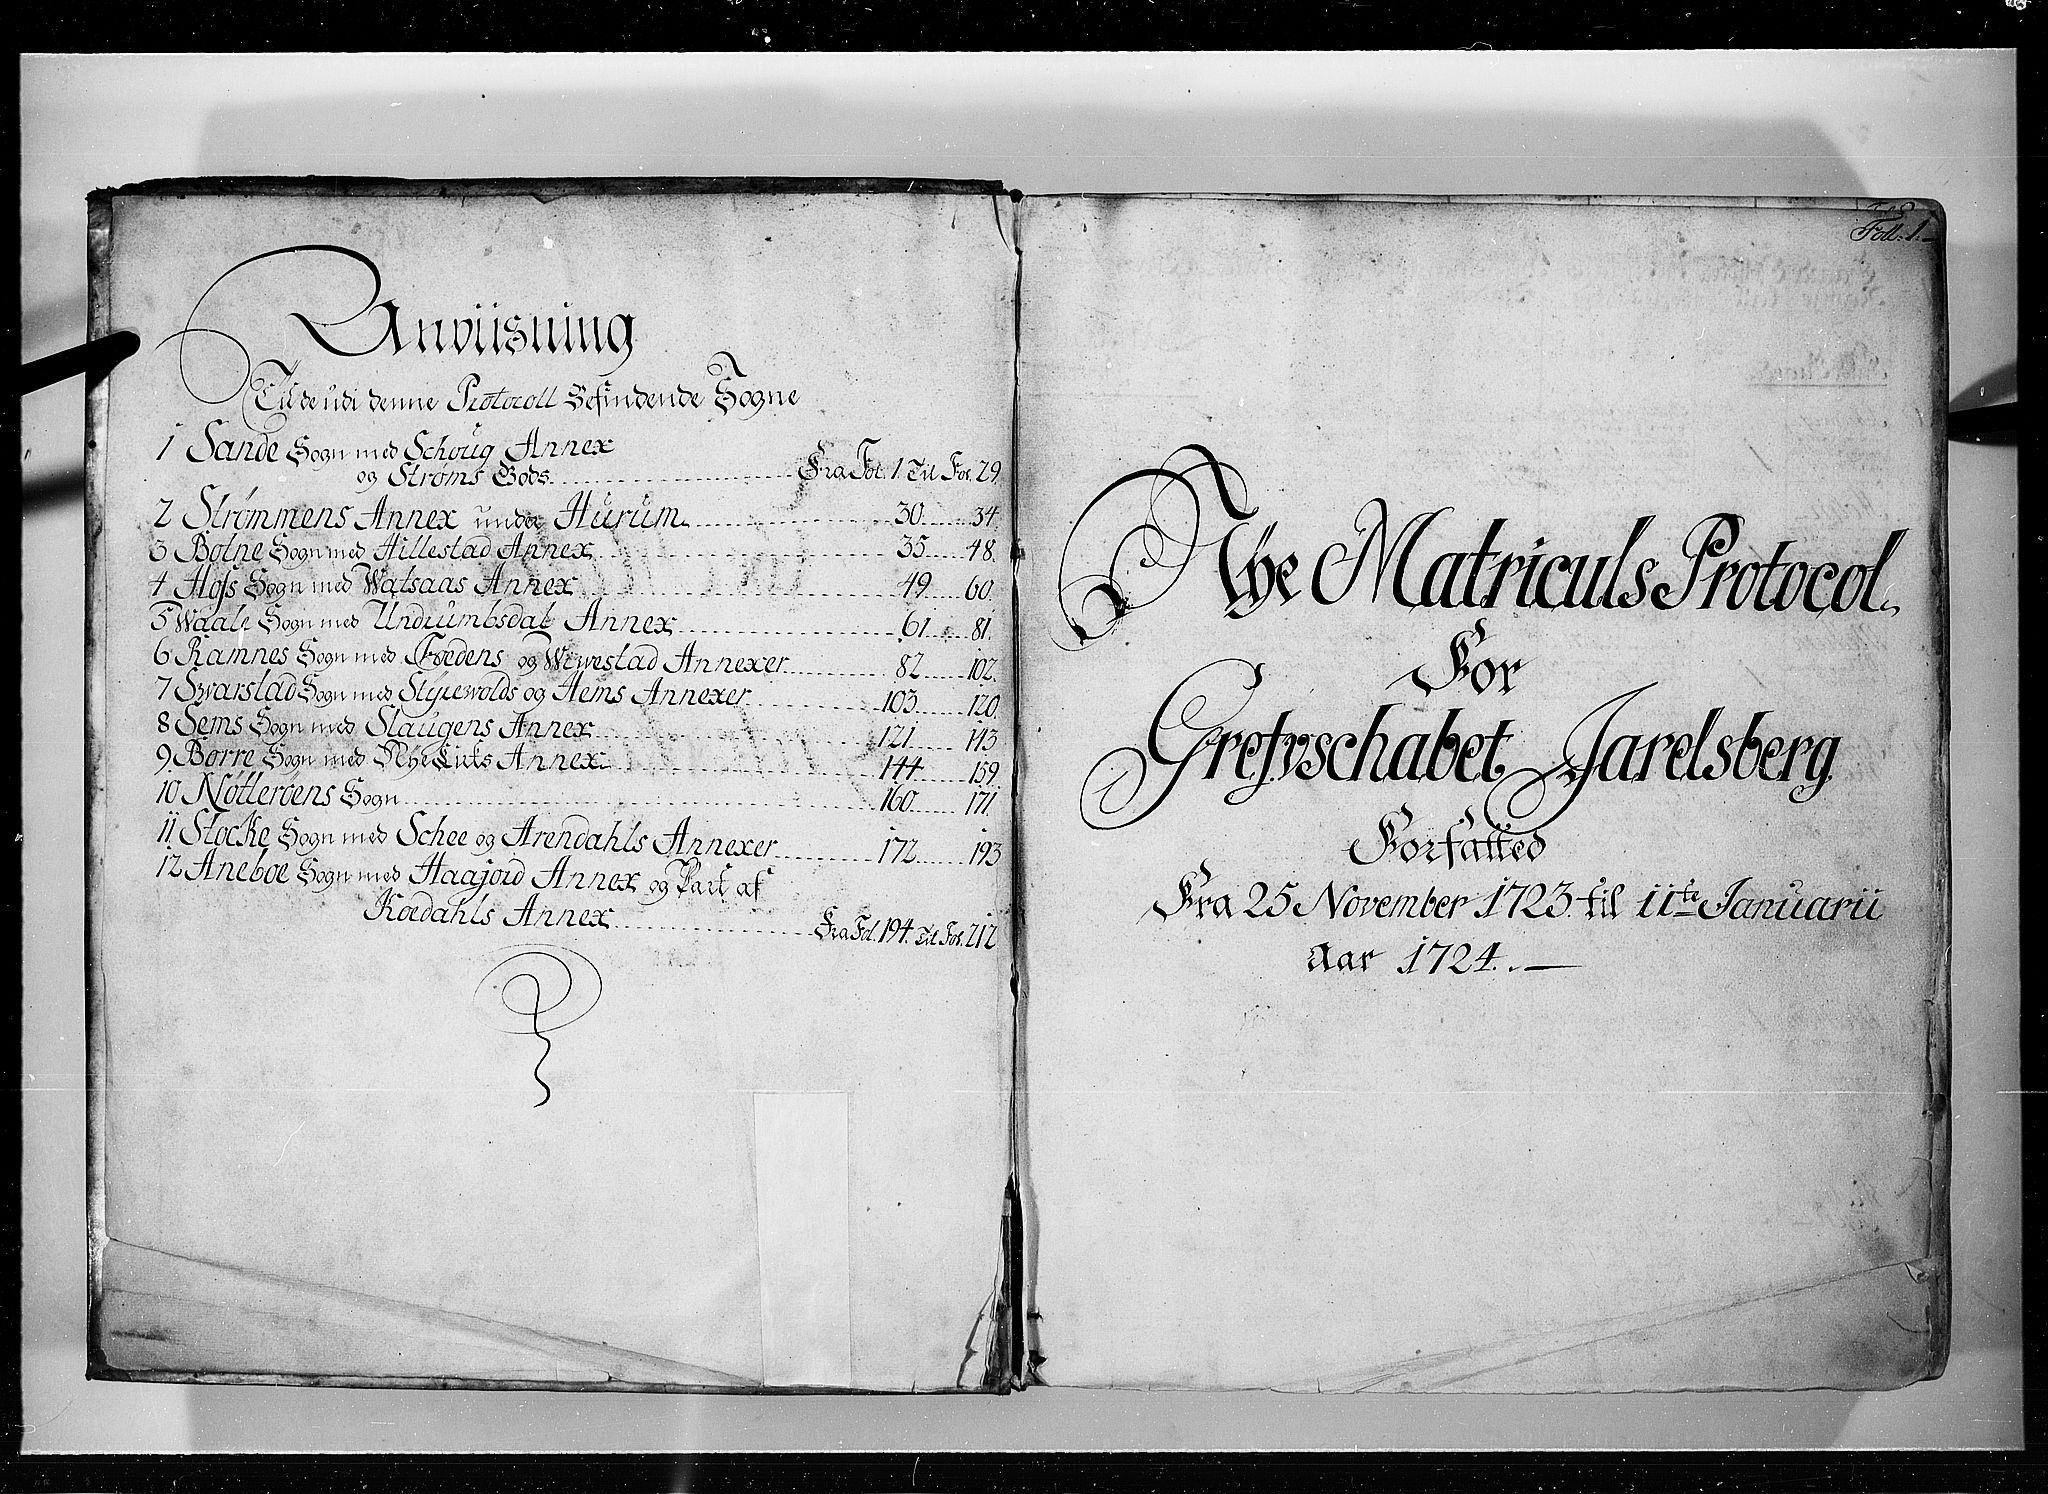 Anviisning
Til de udi denne Protocoll Befindende Sogne
1 Sande Sogn med Schoug Annex
og Strøms Gods Fra Fol. 1. Til Fol. 29
2 Strømmens Annex under Hurum 30 34.
3 Botne Sogn med Hillestad Annex 35 48.
4 Hofs Sogn med Watsaas Annex 49 60.
5 Waale Sogn med Undrumbsdal Annex 61 81.
6 Ramnes Sogn med Foedens og Wivestad Annexer 82 102.
7 Svarstad Sogn med Styrevolds og Hems Annexer 103 120.
8 Sems Sogn med Slaugens Annex 121 143
9 Borre Sogn med Nyekirks Annex 144 159
10 Nøtterøens Sogn 160 171.
11 Stocke Sogn med Schee og Arendahls Annexer 172 193
12 Aneboe Sogn med Haajord Annex og Part af
Koedahls Annex Fra Fol. 194. Til Fol. 212
Foll: 1.
Nye Matriculs Protocol.
For
Grefvschabet Jarelsberg
Forfatted
Fra 25 November 1723. til 11te Januarii
Aar 1724.